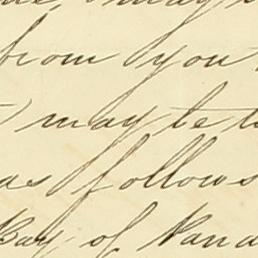 may
from you
may be t
as follows
Bay of Pana